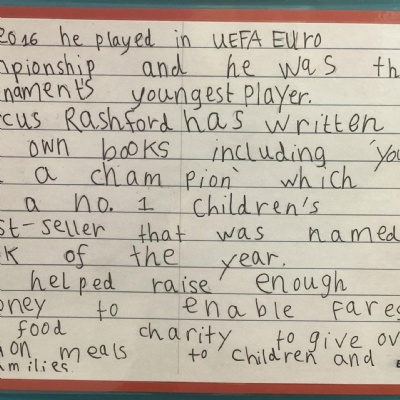 2016 he played in UEFA Euro
mpionship and he was th
naments youngest Player.
cus Rashford has written
own books including 'you
a cham pion' which
a no. 1 children's
st-seller that was named
k of the year.
helped raise enough
oney to enable fares
food charity to give ov
on meals to children and
milies.